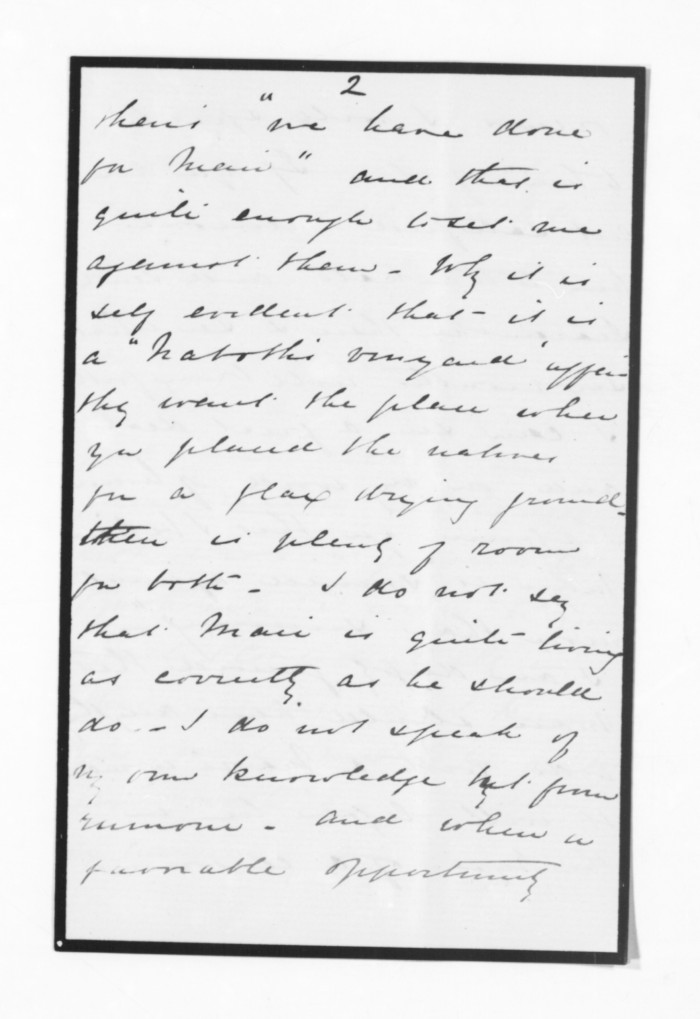 2
theirs "we have done
for Maui" and that is
quite enough to set me
against them - Why it is
self evident that - it is
a "Naboth's vineyard" affair
they want the place where
you placed the natives
for a flax drying ground -
there is plenty of room
for both - I do not say
that Maui is quite living
as correctly as he should
do - I do not speak of
my own knowledge but from
rumour - and when a
favorable opportunity